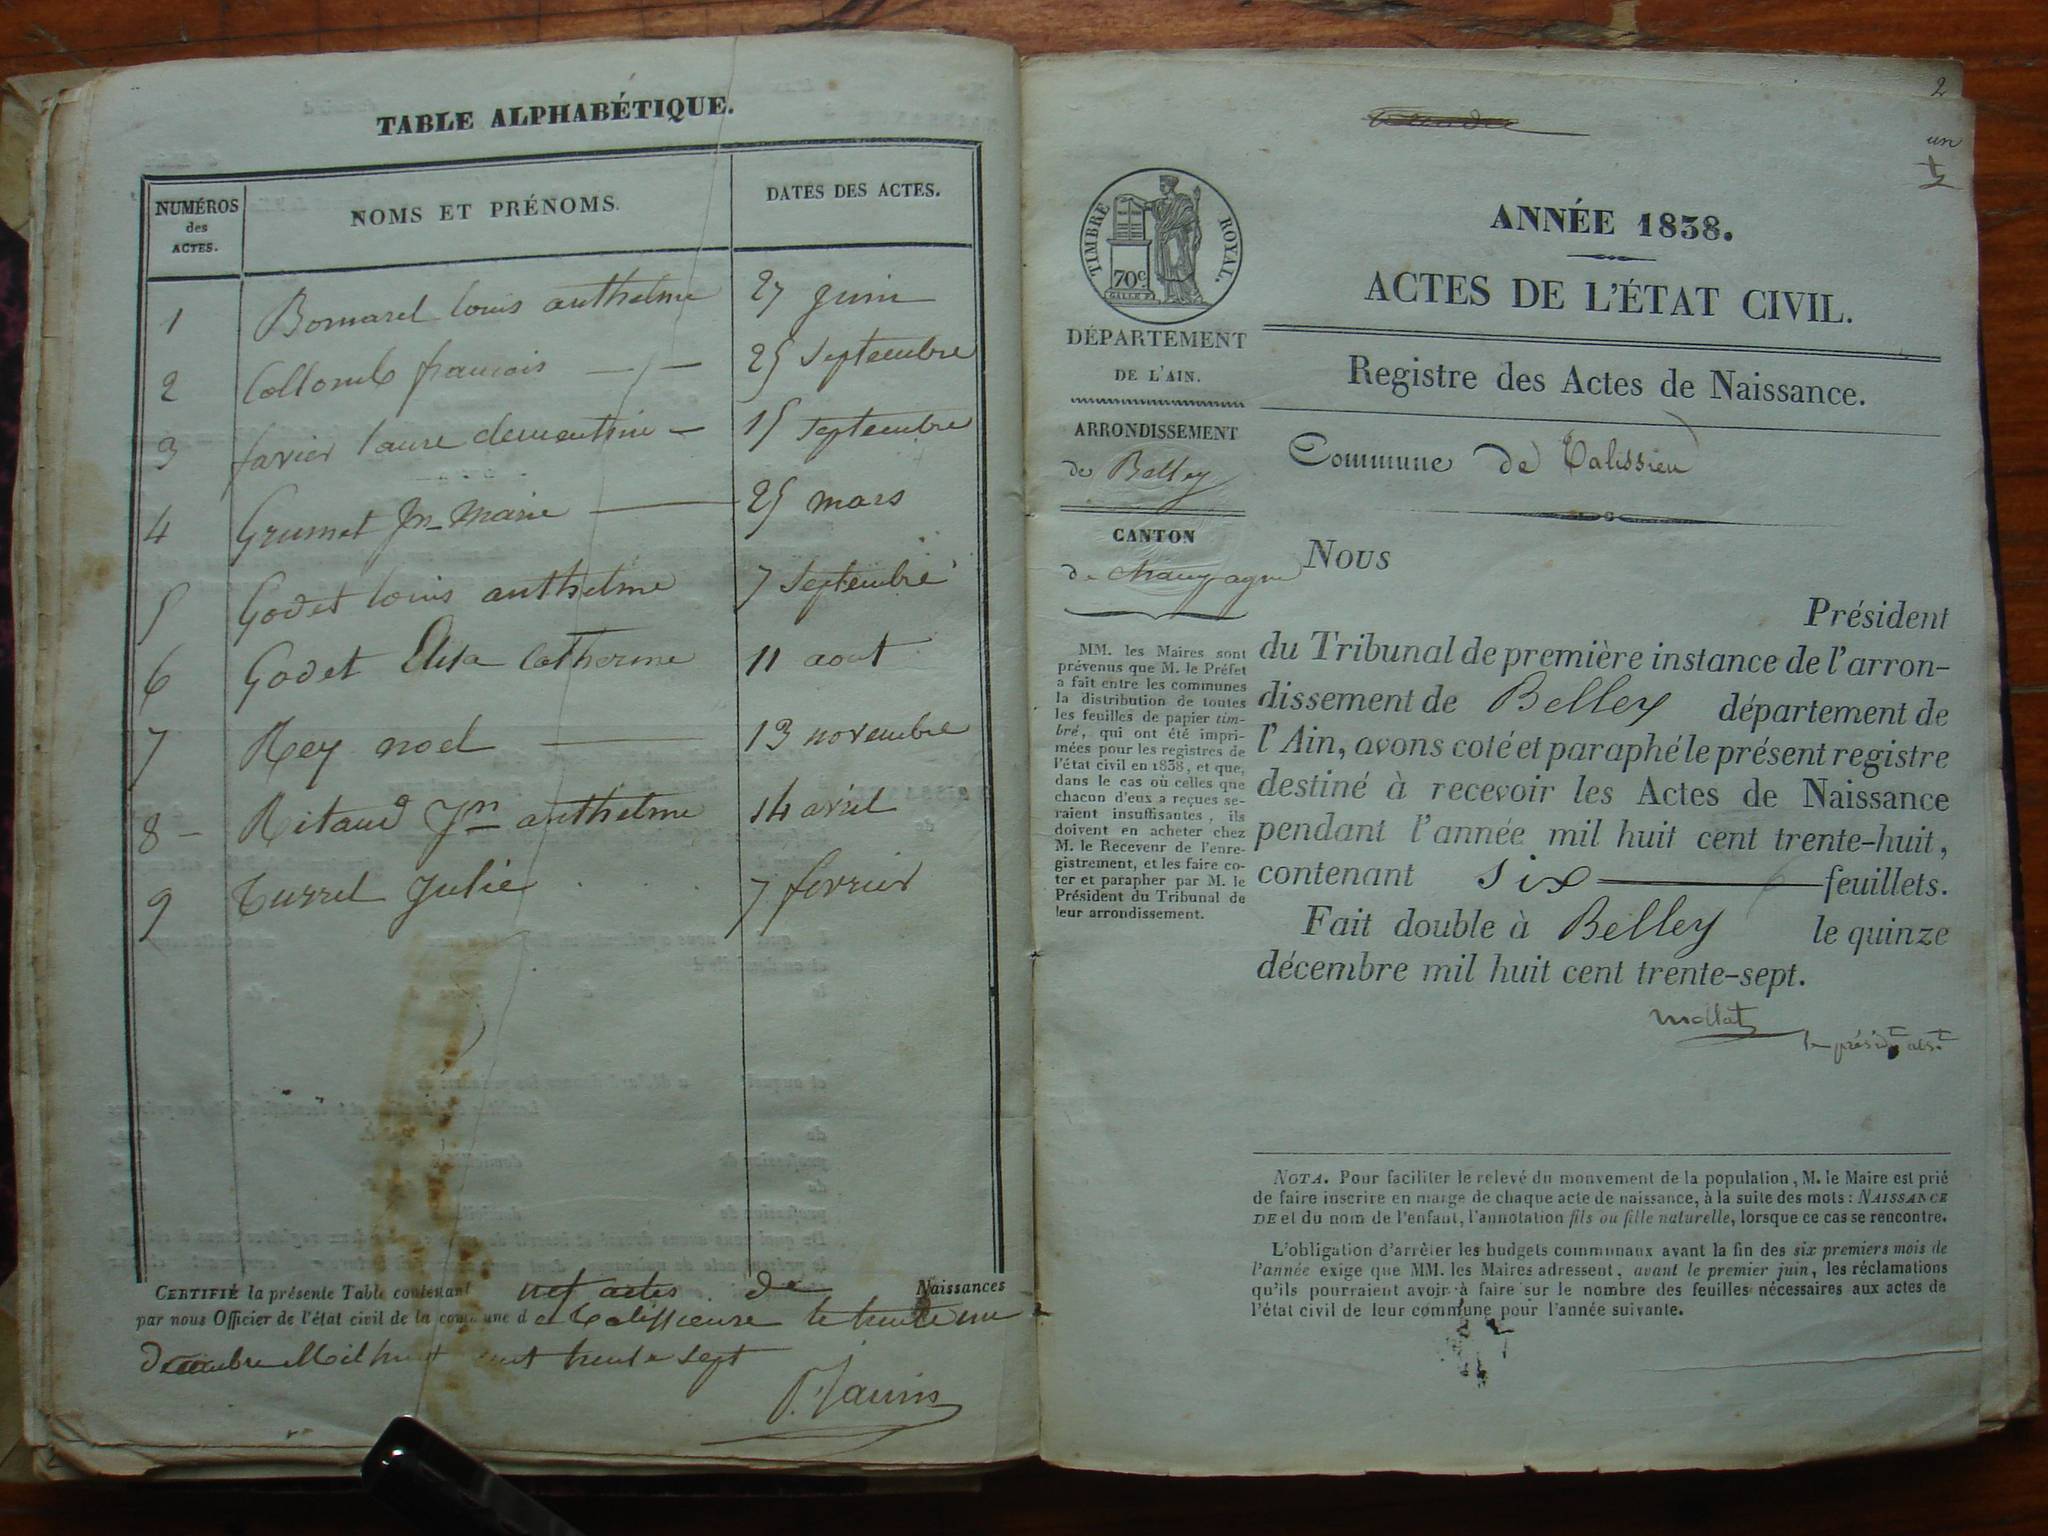 TABLE ALPHABÉTIQUE.
NUMÉROS des ACTES.
NOMS ET PRÉNOMS.
DATES DES ACTES.
1 Bomarel louis anthelme 27 juin
2 Collomb francois 25 Septembre
3 favier laure clementine 15 septembre
4 Grumet Jn Marie 25 mars
5 Godet louis anthelme 7 Septembre
6 Godet Elisa Catherine 11 aout
7 Rey noel 13 novembre
8 Ritaud Jn anthelme 14 avril
9 Turrel Julie 7 fevrier
CERTIFIÉ la présente Table contenant neuf actes de Naissances
par nous Officier de l'état civil de la commune d e le trente un
Decembre Mil huit cent trente sept
2
un
ANNÉE 1838.
TIMBRE ROYAL.
70c
ACTES DE L'ÉTAT CIVIL.
DÉPARTEMENT
DE L'AIN.
Registre des Actes de Naissance.
ARRONDISSEMENT
de Belley
Commune de Talissieu
CANTON
de Champagne
MM. les Maires sont
prévenus que M. le Préfet
a fait entre les communes
la distribution de toutes
les feuilles de papier tim-
bré, qui ont été impri-
mées pour les registres de
l'état civil en 1838, et que,
dans le cas où celles que
chacun d'eux a reçues se-
raient insuffisantes, ils
doivent en acheter chez
M. le Receveur de l'enre-
gistrement, et les faire co-
ter et parapher par M. le
Président du Tribunal de
leur arrondissement.
Nous
Président
du Tribunal de première instance de l'arron-
dissement de Belley département de
l'Ain, avons coté et paraphé le présent registre
destiné à recevoir les Actes de Naissance
pendant l'année mil huit cent trente-huit,
contenant six feuillets.
Fait double à Belley le quinze
décembre mil huit cent trente-sept.
Mollat
le présidt abst
NOTA. Pour faciliter le relevé du mouvement de la population, M. le Maire est prié
de faire inscrire en marge de chaque acte de naissance, à la suite des mots: NAISSANCE
DE et du nom de l'enfant, l'annotation fils ou fille naturelle, lorsque ce cas se rencontre.
L'obligation d'arrêter les budgets communaux avant la fin des six premiers mois de
l'année exige que MM. les Maires adressent, avant le premier juin, les réclamations
qu'ils pourraient avoir à faire sur le nombre des feuilles nécessaires aux actes de
l'état civil de leur commune pour l'année suivante.